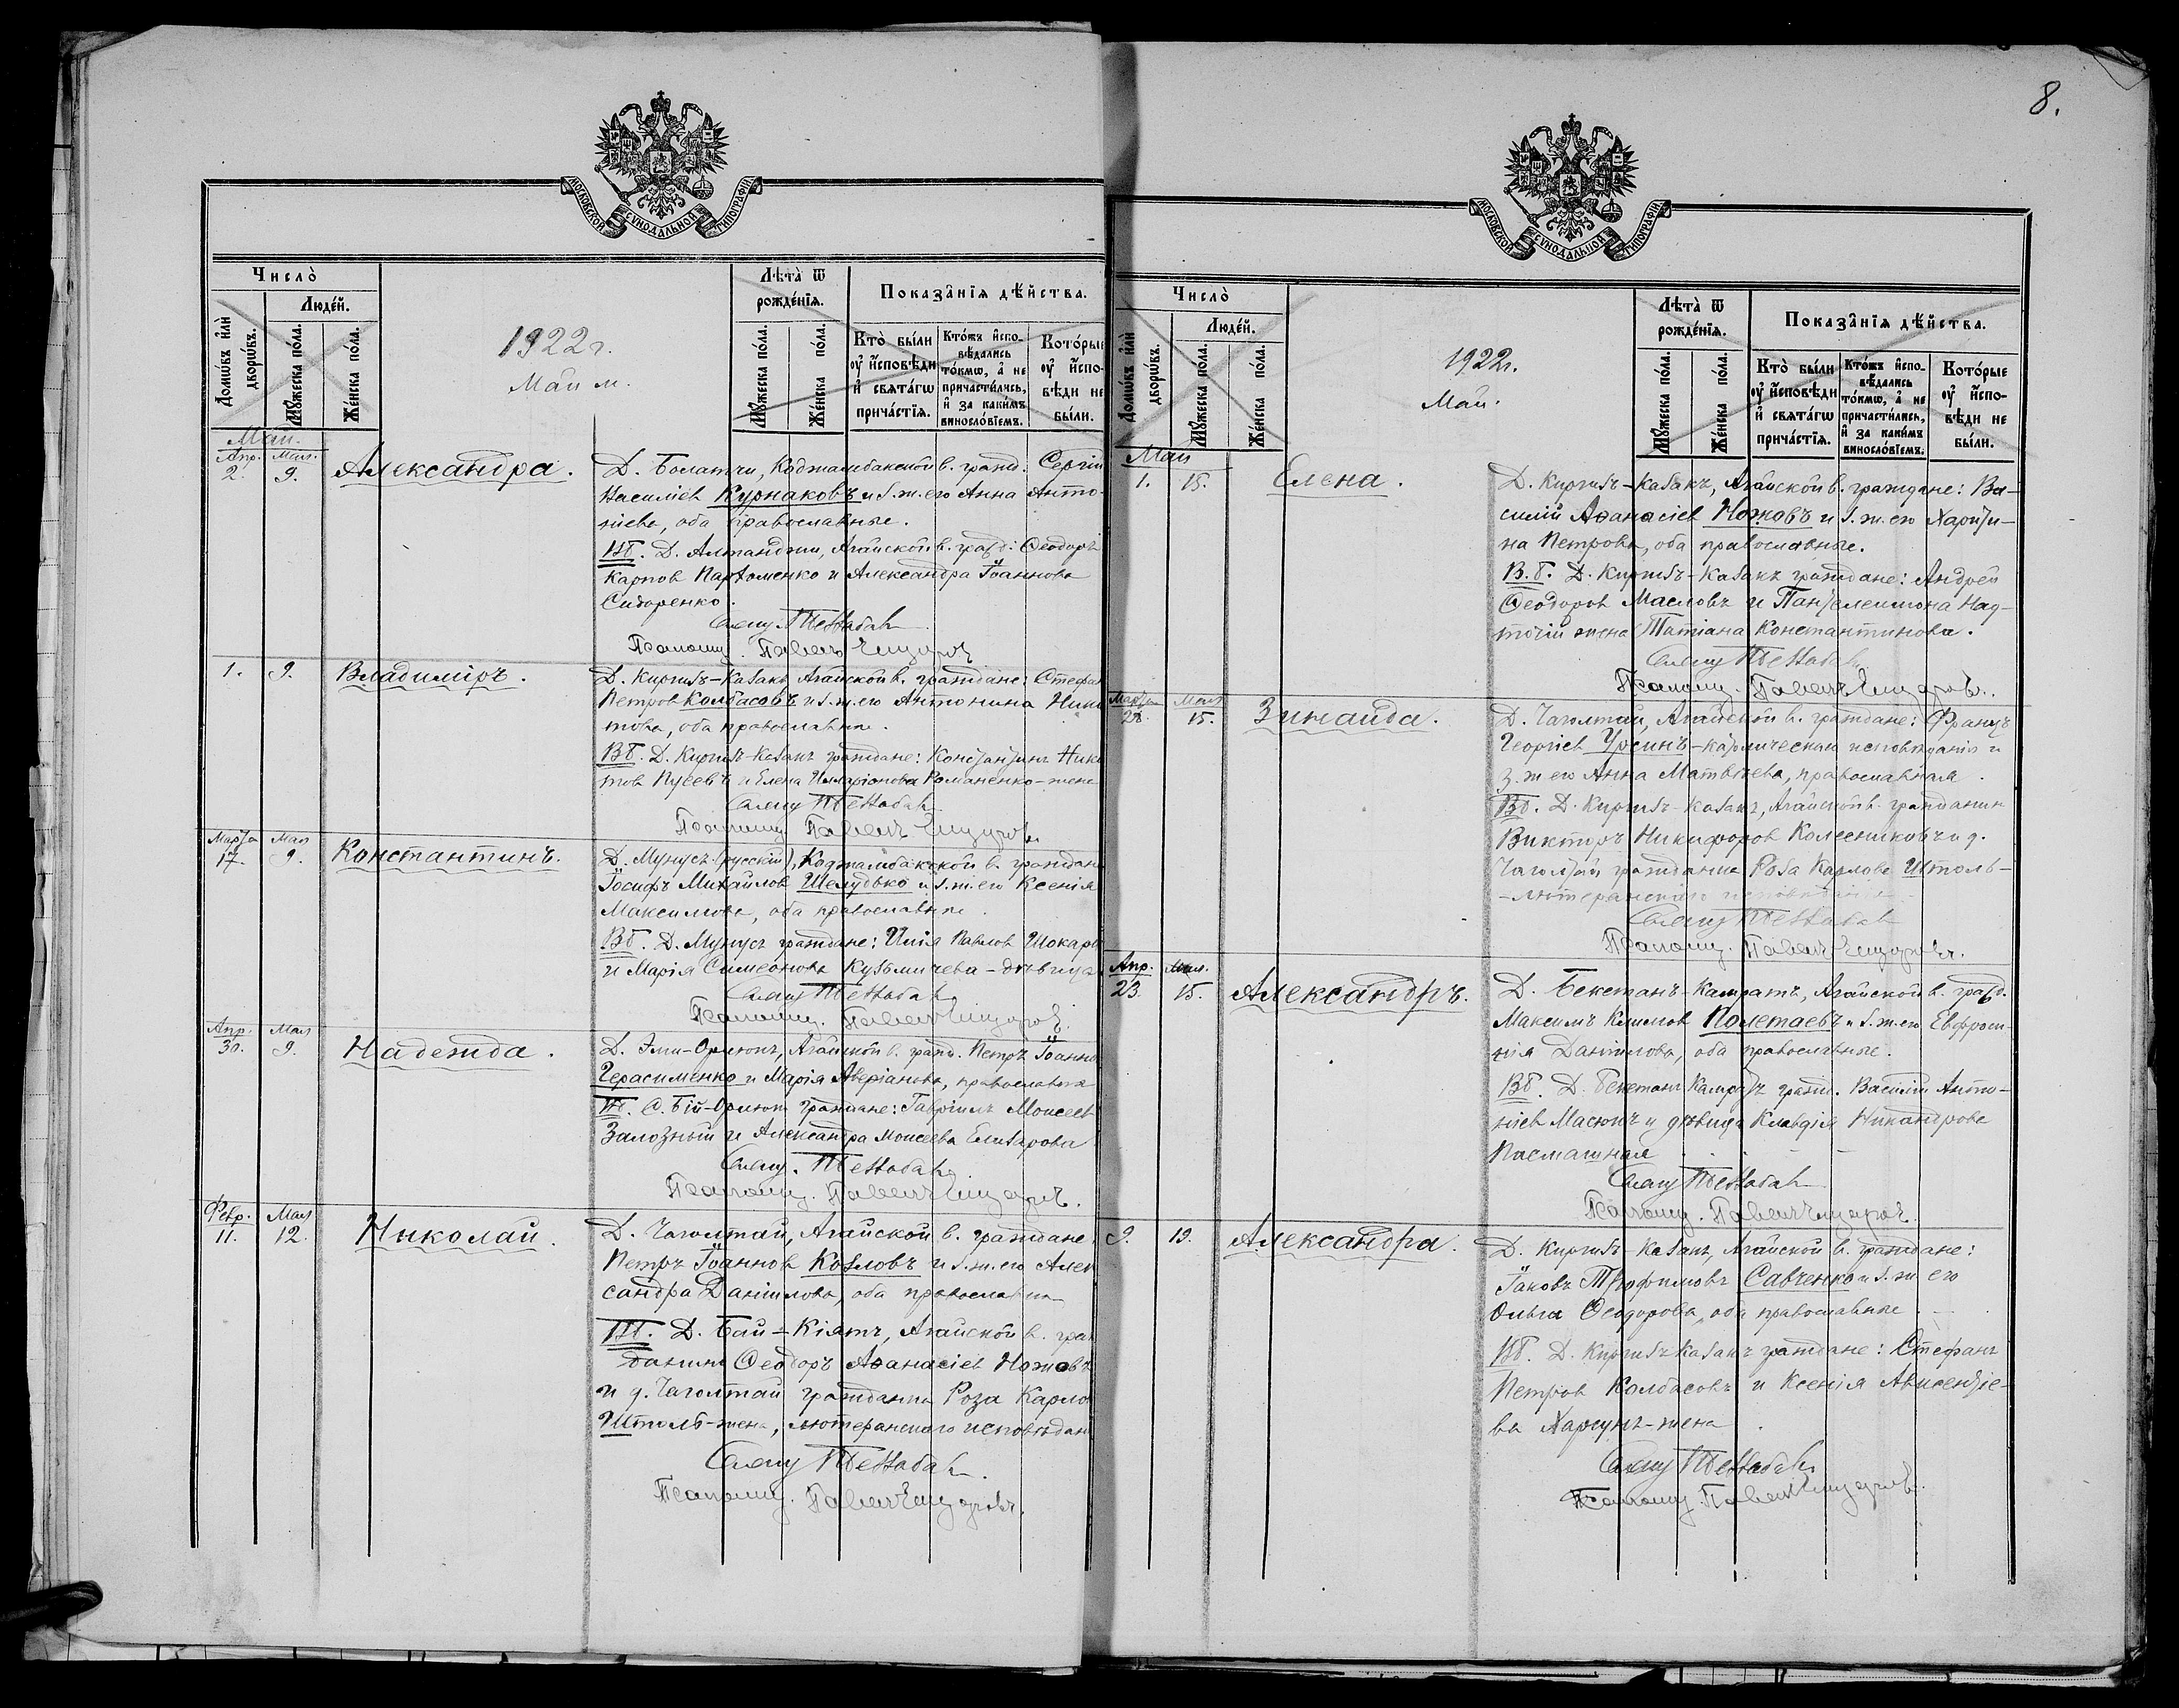 МОСКОВСКОЙ СѴНОДАЛЬНОЙ ТИПОГРАФІИ
Число̀
Домѡ́въ и҆лѝ дворѡ́въ.
Люде́й.
Мꙋ́жеска по́ла.
Же́нска по́ла.
1922 г.
Май м.
Лѣ́та ѿ рожде́нїѧ.
Мꙋ́жеска по́ла.
Же́нска по́ла.
Показа̑нїѧ дѣ́йства.
Кто̀ бы́ли оу҆ и҆́сповѣди и҆ свѧта́гѡ прича́стїѧ.
Кто́жъ и҆спо-
вѣ́дались
то́кмѡ, а҆ не
причасти́лись,
и҆ за каки́мъ
винослові́емъ.
Кото́рые
оу҆ и҆спо-
вѣди не
бы́ли.
Май.
Апр. Мая.
2. 9. Александра.
Д. Болатчи, Коджамбакской в. гражд. Сергій
Василіев Курнаковъ и з. ж. его Анна Анто-
ніева, оба православные.
ВП. Д. Алманджи, Агайской в. гражд: Ѳеодоръ
Карпов Парѳоменко и Александра Іоаннова
Сидоренко.
Псаломщ. Павелъ
1. 9. Владиміръ.
Д. Киргизъ-Казакъ Агайской в. граждане: Стефан
Петров Колбасовъ и з. ж. его Антонина Ники
това, оба православные.
ВП. Д. Киргизъ-Казакъ граждане: Константинъ Ники
тов Пусевъ и Елена Илларіонова Романенко-жена
Псаломщ. Павелъ
Марта Мая
17. 9. Константинъ.
Д. Мунусъ (русскій), Коджамбакской в. граждане
Іосифъ Михайлов Шелудько и з. ж. его Ксенія
Максимова, оба православные.
ВП. Д. Мунусъ граждане: Илія Павлов Шокаре
и Марія Симеонова Кузьмичева - дѣвица
Псаломщ. Павелъ
Апр. Мая
30. 9. Надежда.
Д. Эли-Орлюкъ, Агайской в. гражд. Петръ Іоанно
Герасименко и Марія Аверіанова, православные
ВП. С. Бій-Орлюкъ граждане: Гавріилъ Моисеев
Залозный и Александра Моисеева Елизарова
Псаломщ. Павелъ
Февр. Мая
11. 12. Николай.
Д. Чаголтай, Агайской в. граждане
Петръ Іоаннов Козловъ и з. ж. его Алек
сандра Даніилова, оба православные
ВП. Д. Бай-Кіятъ, Агайской в. граж
данин Ѳеодоръ Аѳанасіев Ножовъ
и д. Чаголтай гражданка Роза Карлов
Штоль-жена, лютеранского исповѣдан
Псаломщ. Павелъ
8.
МОСКОВСКОЙ СѴНОДАЛЬНОЙ ТИПОГРАФІИ
Число̀
Домѡ́въ и҆лѝ дворѡ́въ.
Люде́й.
Мꙋ́жеска по́ла.
Же́нска по́ла.
1922 г.
Май.
Лѣ́та ѿ рожде́нїѧ.
Мꙋ́жеска по́ла.
Же́нска по́ла.
Показа̑нїѧ дѣ́йства.
Кто̀ бы́ли оу҆ и҆́сповѣди и҆ свѧта́гѡ прича́стїѧ.
Кто́жъ и҆спо-
вѣ́дались
то́кмѡ, а҆ не
причасти́лись,
и҆ за каки́мъ
винослові́емъ.
Кото́рые
оу҆ и҆спо-
вѣди не
бы́ли.
Май
1. 15. Елена.
Д. Киргизъ-Казакъ, Агайской в. граждане: Ва-
силій Аѳанасіев Ножовъ и з. ж. его Харити-
на Петрова, оба православные.
В.П. Д. Киргизъ-Казакъ граждане: Андрей
Ѳеодоров Масловъ и Пантелеимона Над-
точій жена Татіана Константинова.
Псаломщ. Павелъ
Марта Мая
28. 15. Зинаида.
Д. Чаголтай, Агайской в. граждане: Францъ
Георгіев Урсинъ-католическаго исповѣданія и
з. ж его Анна Матвѣева, православная.
ВП. Д. Киргизъ-Казакъ, Агайской в. гражданин
Викторъ Никифоров Колесниковъ и д.
Чаголтай гражданка Роза Карлова Штоль-
-лютеранскаго исповѣданія
Псаломщ. Павелъ
Апр. Мая.
23. 15. Александръ.
Д. Бекетанъ-Камратъ, Агайской в. гражд.
Максимъ Климов Полетаевъ и з. ж. его Евфроси-
нія Даніилова, оба православные.
ВП. Д. Бекетанъ Камратъ гражд. Василій Анто-
ніев Масюкъ и дѣвица Клавдія Никандрова
Псаломщ. Павелъ
9. 19. Александра.
Д. Киргизъ-Казакъ, Агайской в. граждане:
Іаковъ Трофимовъ Савченко и з. ж его
Ольга Ѳеодорова, оба православные.
ВП. Д. Киргизъ Казакъ граждане: Стефанъ
Петров Колбасовъ и Ксенія Авксентіе-
ва Харгунъ-жена
Псаломщ. Павелъ